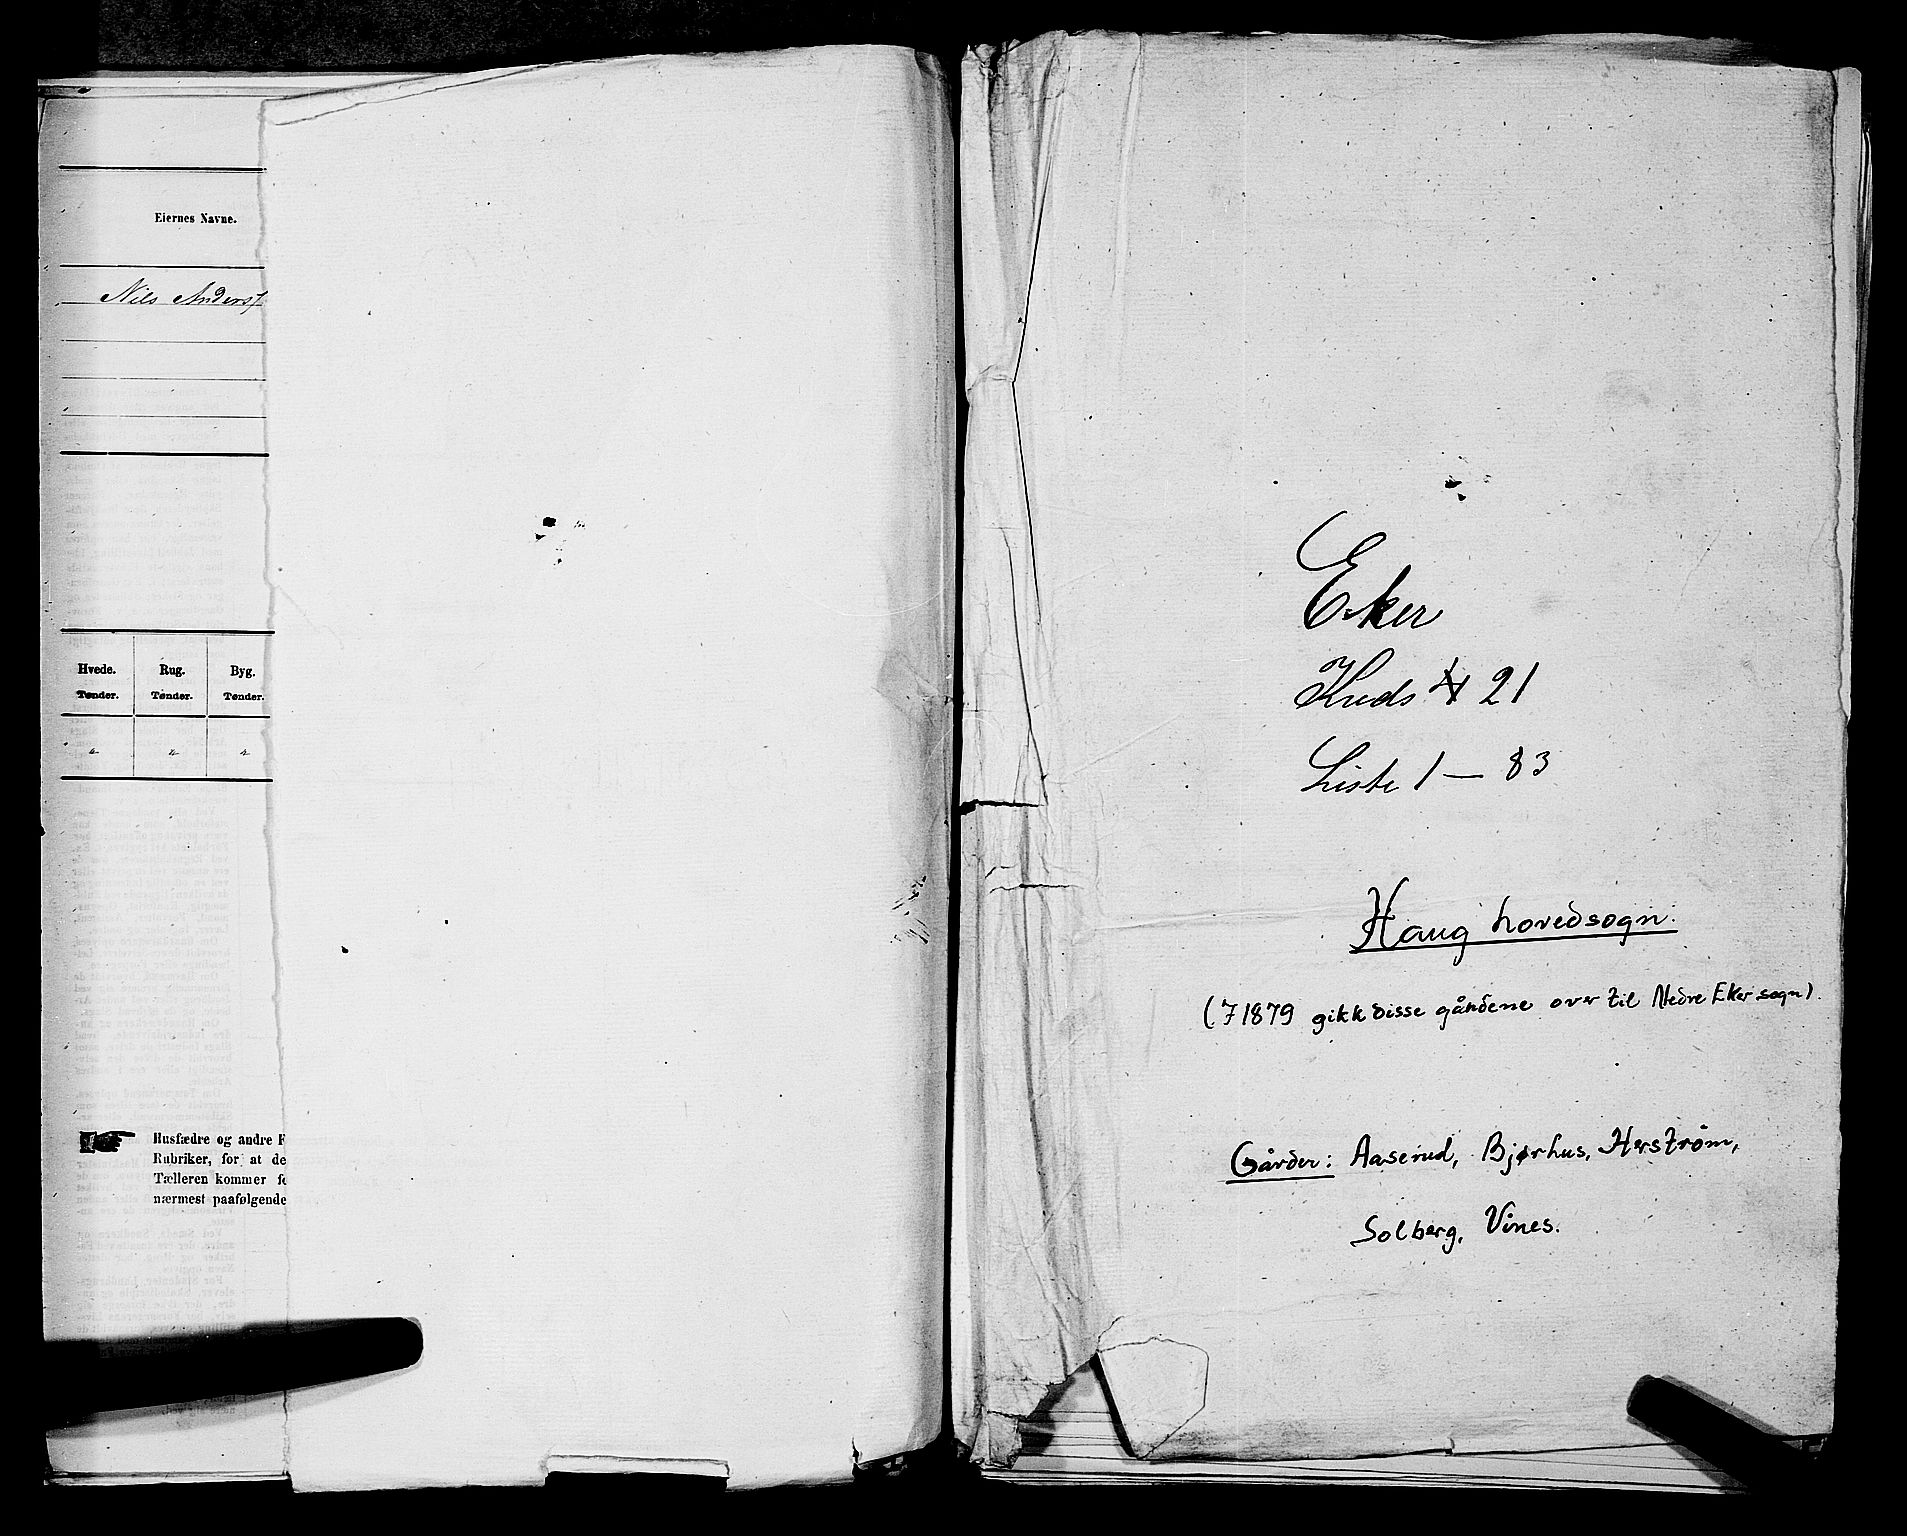 Eiernes Navne.
Nils Anders
Hvede. Rug. Byg.
Tønder. Tønder. Tønder.
" " "
Husfædre og andre F
Rubriker, for at de
Tælleren kommer fo
nærmest paafølgende
Eker
Kreds N 21
Liste 1 — 83
Haug hovedsogn.
(I 1879 gikk disse gårdene over til Nedre Eker sogn).
Gårder: Aaserud, Bjørhus, Herstrøm,
Solberg, Vines.